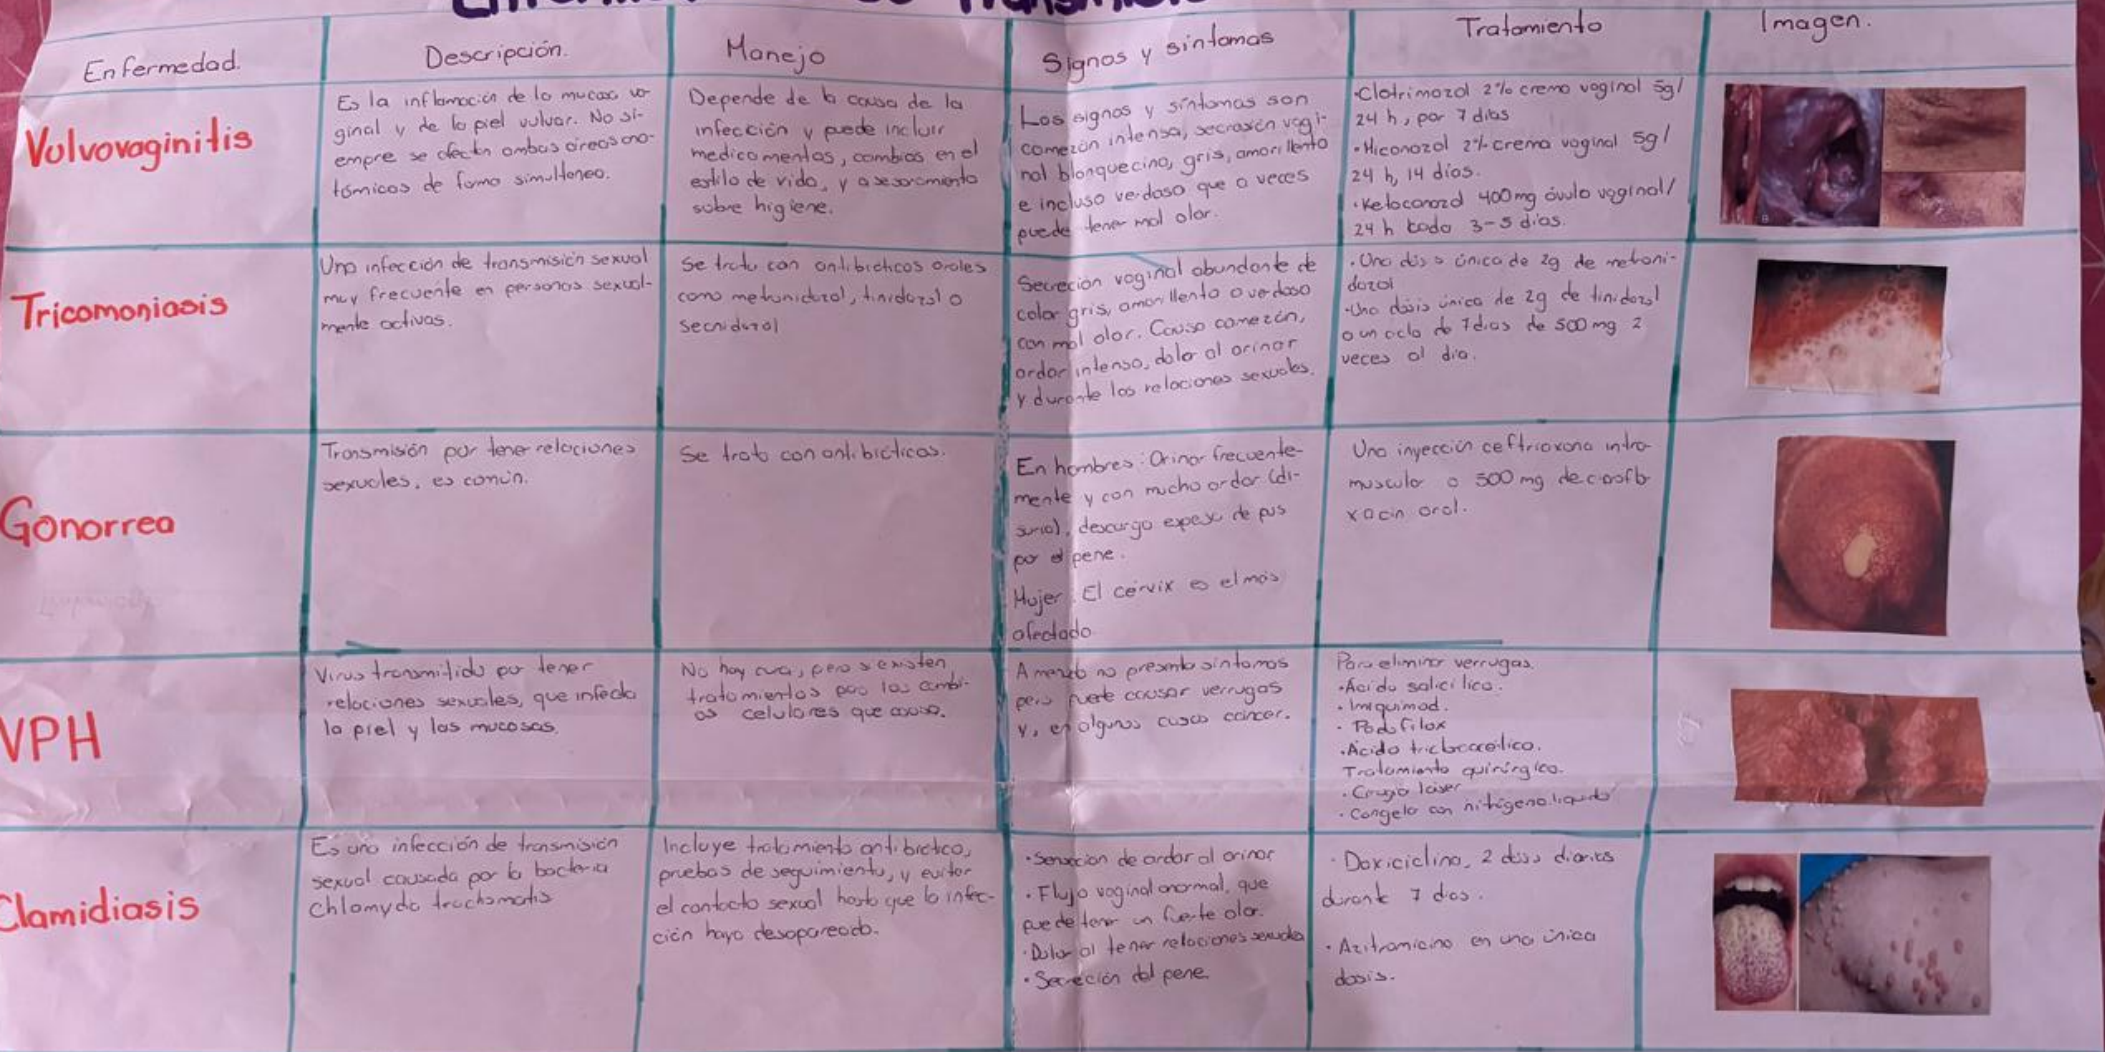 Enfermedad.
Descripción.
Manejo
Signos y sintomas
Tratamiento
Imagen.
Vulvovaginitis
Es la inflamación de la mucosa va-
ginal y de la piel vulvar. No si-
empre se afectan ambas áreas ana-
tómicas de forma simultanea.
Depende de la causa de la
infección y puede incluir
medicamentos, cambios en el
estilo de vida, y asesoramiento
sobre higiene.
Los signos y síntomas son
comezón intensa, secrasión vagi-
nal blanquecina, gris, amarillento
e incluso verdosa que a veces
puede tener mal olor.
•Clotrimazol 2% crema vaginal 5g/
24 h, por 7 dias
•Miconazol 2% crema vaginal 5g/
24 h, 14 días.
•Ketoconazol 400mg óvulo vaginal/
24 h cada 3-5 dias.
Tricomoniasis
Una infección de transmisión sexual
muy frecuente en personas sexual-
mente activas.
Se trata con antibióticos orales
como metronidazol, tinidazol o
secnidazol
Secreción vaginal abundante de
color gris, amarillento o verdoso
con mal olor. Causa comezón,
ardor intenso, dolor al orinar
y durante las relaciones sexuales.
•Una dosis única de 2g de metroni-
dazol
•Una dosis única de 2g de tinidazol
o un ciclo de 7 dias de 500 mg 2
veces al dia.
Gonorrea
Transmisión por tener relaciones
sexuales, es común.
Se trata con antibióticos.
En hombres: Orinar frecuente-
mente y con mucho ardor (di-
suria), descarga espesa de pus
por el pene.
Mujer: El cérvix es el más
afectado
Una inyección ceftriaxona intra-
muscular o 500 mg de ciproflo-
xacin oral.
VPH
Virus transmitido por tener
relaciones sexuales, que infecta
la piel y las mucosas.
No hay cura, pero si existen
tratamientos para los cambi-
os celulares que causa.
A menudo no presenta síntomas
pero puede causar verrugas
y, en algunos casos cáncer.
Para eliminar verrugas.
•Ácido salicílico.
•Imiquimod.
•Podofilox
•Ácido tricloroacético.
Tratamiento quirúrgico.
•Cirugía láser
•Congela con nitrógeno liquido
Clamidiasis
Es una infección de transmisión
sexual causada por la bacteria
Chlamydia trachomatis
Incluye tratamiento antibiótico,
pruebas de seguimiento, y evitar
el contacto sexual hasta que la infec-
ción haya desaparecido.
•Sensación de ardor al orinar
•Flujo vaginal anormal, que
puede tener un fuerte olor.
•Dolor al tener relaciones sexuales
•Secreción del pene
•Doxiciclina, 2 dosis diarias
durante 7 dias.
•Azitromicina en una única
dosis.